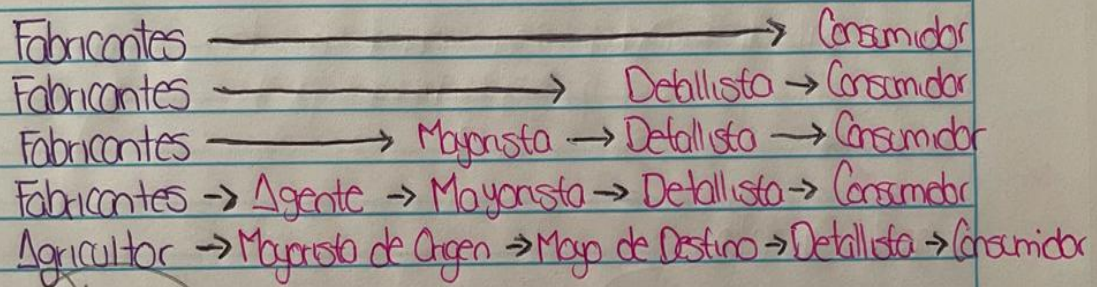 Fabricantes → Consumidor
Fabricantes → Detallista → Consumidor
Fabricantes → Mayorista → Detallista → Consumidor
Fabricantes → Agente → Mayorista → Detallista → Consumidor
Agricultor → Mayorista de Origen → Mayo de Destino → Detallista → Consumidor